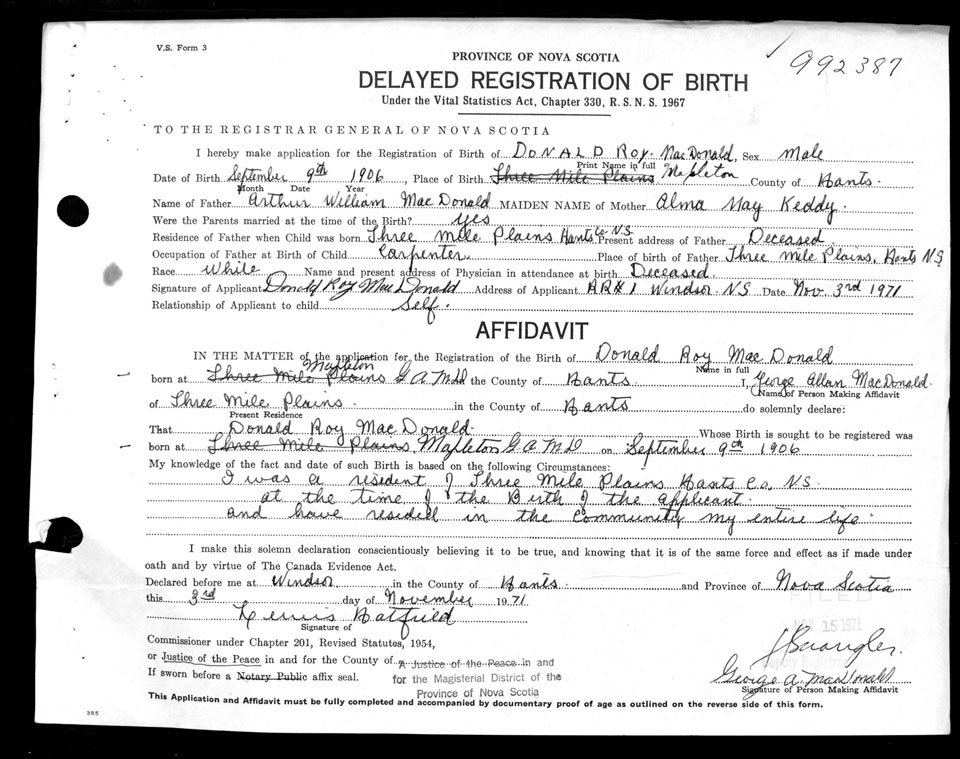 V.S. Form 3
992387
PROVINCE OF NOVA SCOTIA
DELAYED REGISTRATION OF BIRTH
Under the Vital Statistics Act, Chapter 330, R. S. N. S. 1967
TO THE REGISTRAR GENERAL OF NOVA SCOTIA
I hereby make application for the Registration of Birth of DONALD Roy. MacDonald, Sex Male
Print Name in full
Date of Birth September 9th 1906, Place of Birth Three Mile Plains Mapleton County of Hants.
Month Date Year
Name of Father Arthur William MacDonald MAIDEN NAME of Mother Alma May Keddy.
Were the Parents married at the time of the Birth? yes
Residence of Father when Child was born Three mile Plains Hants Co N.S. Present address of Father Deceased.
Occupation of Father at Birth of Child Carpenter. Place of birth of Father Three mile Plains. Hants N.S
Race White Name and present address of Physician in attendance at birth Deceased.
Signature of Applicant Donald Roy MacDonald Address of Applicant RR#1 Windsor. NS Date Nov. 3rd 1971
Relationship of Applicant to child Self.
AFFIDAVIT
IN THE MATTER of the application for the Registration of the Birth of Donald Roy MacDonald
Name in full
born at Three Mile Plains Mapleton G A M D the County of Hants. I, George Allan MacDonald.
Name of Person Making Affidavit
of Three Mile Plains. in the County of Hants do solemnly declare:
Present Residence
That Donald Roy MacDonald. Whose Birth is sought to be registered was
born at Three Mile Plains. Mapleton G A M D on September 9th 1906
My knowledge of the fact and date of such Birth is based on the following Circumstances:
I was a resident of Three Mile Plains Hants Co. N.S.
at the time of the Birth of the applicant.
and have resided in the community my entire life.
I make this solemn declaration conscientiously believing it to be true, and knowing that it is of the same force and effect as if made under
oath and by virtue of The Canada Evidence Act.
Declared before me at Windsor. in the County of Hants. and Province of Nova Scotia
this 3rd day of November 1971
Lewis Hatfield
Signature of
15 1971
Commissioner under Chapter 201, Revised Statutes, 1954,
or Justice of the Peace in and for the County of A Justice of the Peace in and
If sworn before a Notary Public affix seal. for the Magisterial District of the
Province of Nova Scotia
George A. MacDonald
Signature of Person Making Affidavit
This Application and Affidavit must be fully completed and accompanied by documentary proof of age as outlined on the reverse side of this form.
385